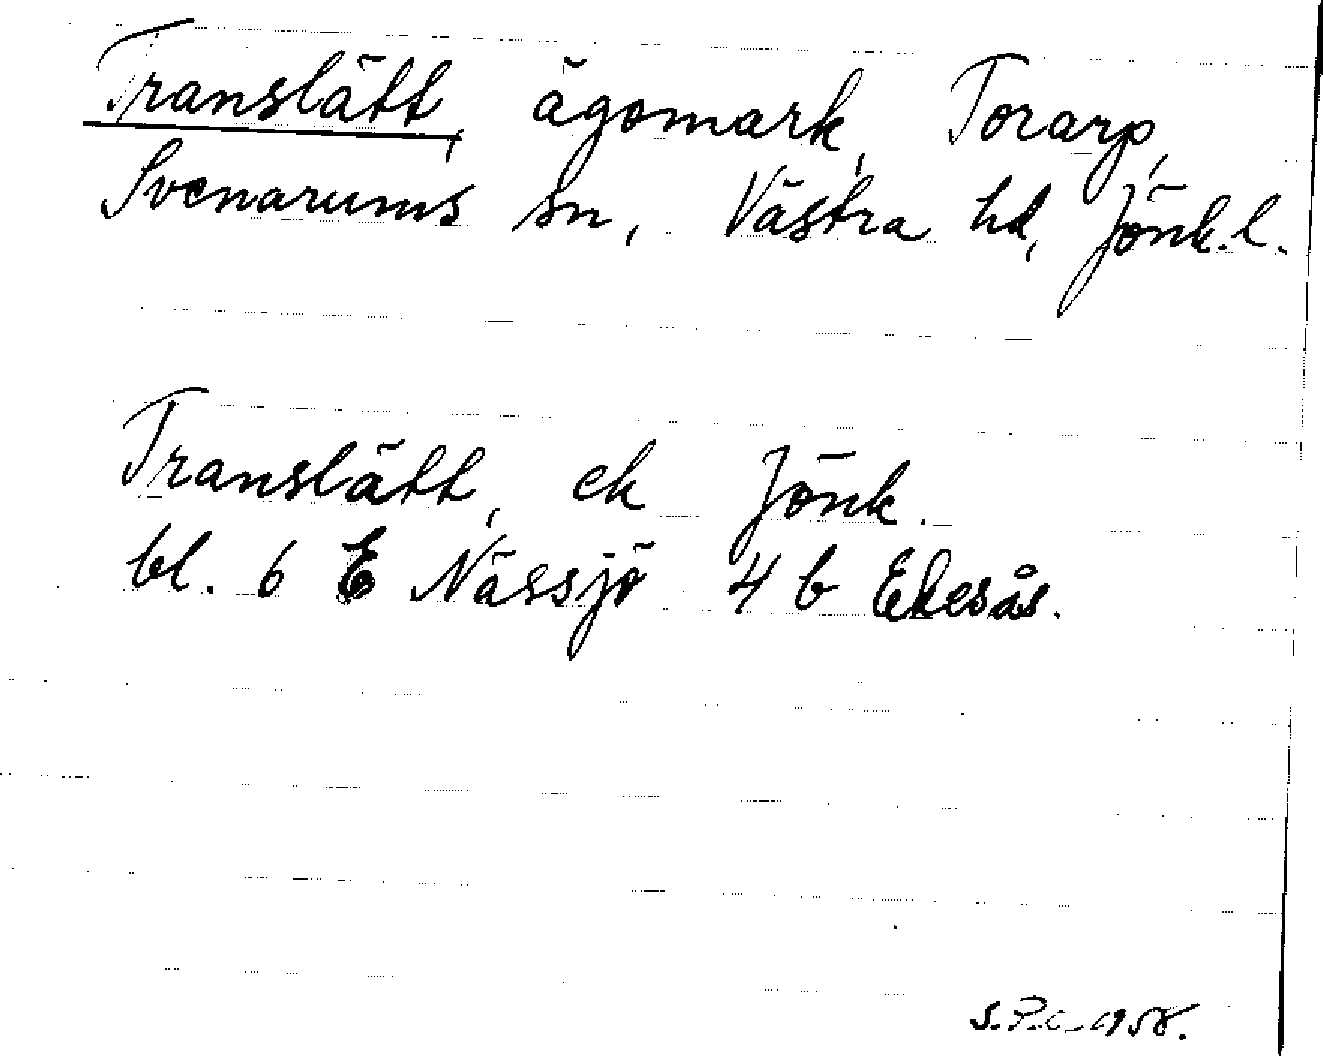 Translätt, ägomark, Torarp,
Svenarums sn, Västra hd, Jönk.l.
Translätt, ek Jönk.
bl. 6 E Nässjö 4 b Ekesås.
1958.